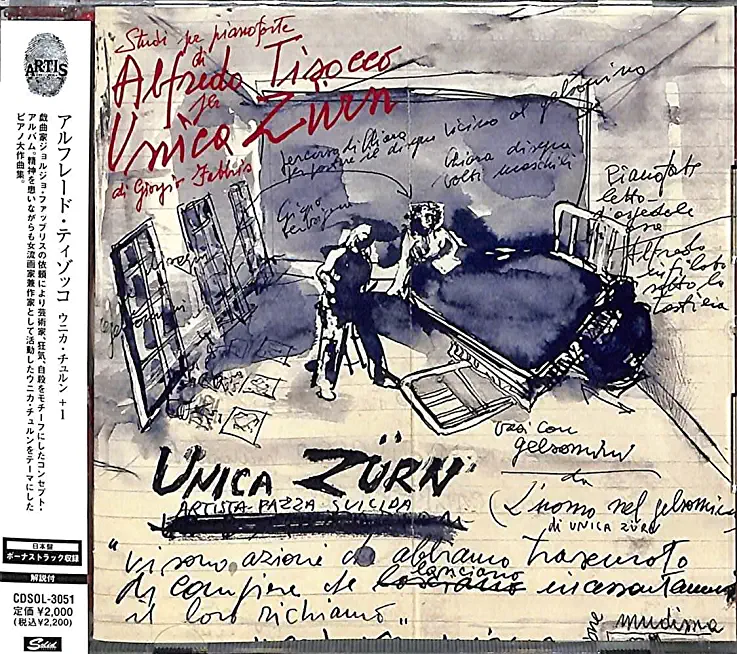 ARTIS
アルフレード・ティゾッコ ウニカ・チュルン +1
戯曲家ジョルジョ・ファッブリスの依頼により芸術家、狂気、自殺をモチーフにしたコンセプト・
アルバム。精神を患いながらも女流画家兼作家として活動したウニカ・チュルンをテーマにした
ピアノ大作曲集。
日本盤
ボーナストラック収録
解説付
CDSOL-3051
定価 ¥2,000
(税込¥2,200)
Solid
Studi per pianoforte
di
Alfredo Tisocco
per
Unica Zürn
di Giorgio Fabbris
percorso di Chiara
per portare il disegno vicino al gelsomino
Chiara disegna
volti maschili
Pianoforte
letto
d'ospedale
Alfredo
infilato
sotto la
tastiera
vasi con
gelsomini
da
(L'uomo nel gelsomino
di UNICA ZÜRN
UNICA ZÜRN
ARTISTA PAZZA SUICIDA
"Vi sono azioni che abbiamo trascurato
di compiere che lanciano incessantemente
il loro richiamo"
mudima